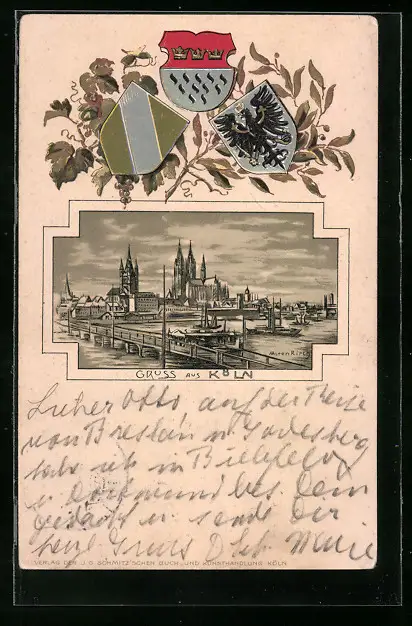 GRUSS AUS KÖLN
Lieber Otto, auf der Reise
von Breslau n. Godesberg
habe ich in Bielefeld
u. Dortmund bes. Dein
gedacht u. sende Dir
herzl. Gruss Marie
VERLAG DER J. G. SCHMITZ'SCHEN BUCH- UND KUNSTHANDLUNG KÖLN